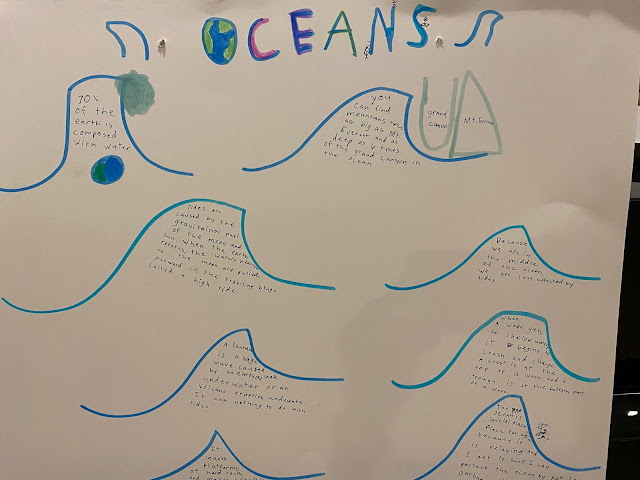 OCEANS
70%
of the
earth is
composed
with water
you
can find
mountians
as big as Mt.
Everest and as
deep as 6 times
of the grand canyon in
the ocean
grand
canyon
Mt.
Tides are
caused by the
pull
of the moon and
sun. When the earth
rotates, the waters
to the moon are pulled
outward, in the
called a high tide
Because
we are in
the middle
of the ocean
we are less affected by
tides
A
is a huge
wave caused
by an earthquake
underwater or an
volcanic eruption
It has nothing to do with
tides
When
a wave gets
to shallow water
it begins to
crash and change
A crest is at the
top of a wave and a
trough is at the bottom part
of a wave
The
ocean is
special place
place for me
because it
is relaxing and
I get to surf. I can
protect the ocean by not
It
leaves
platforms
of hard rock
and